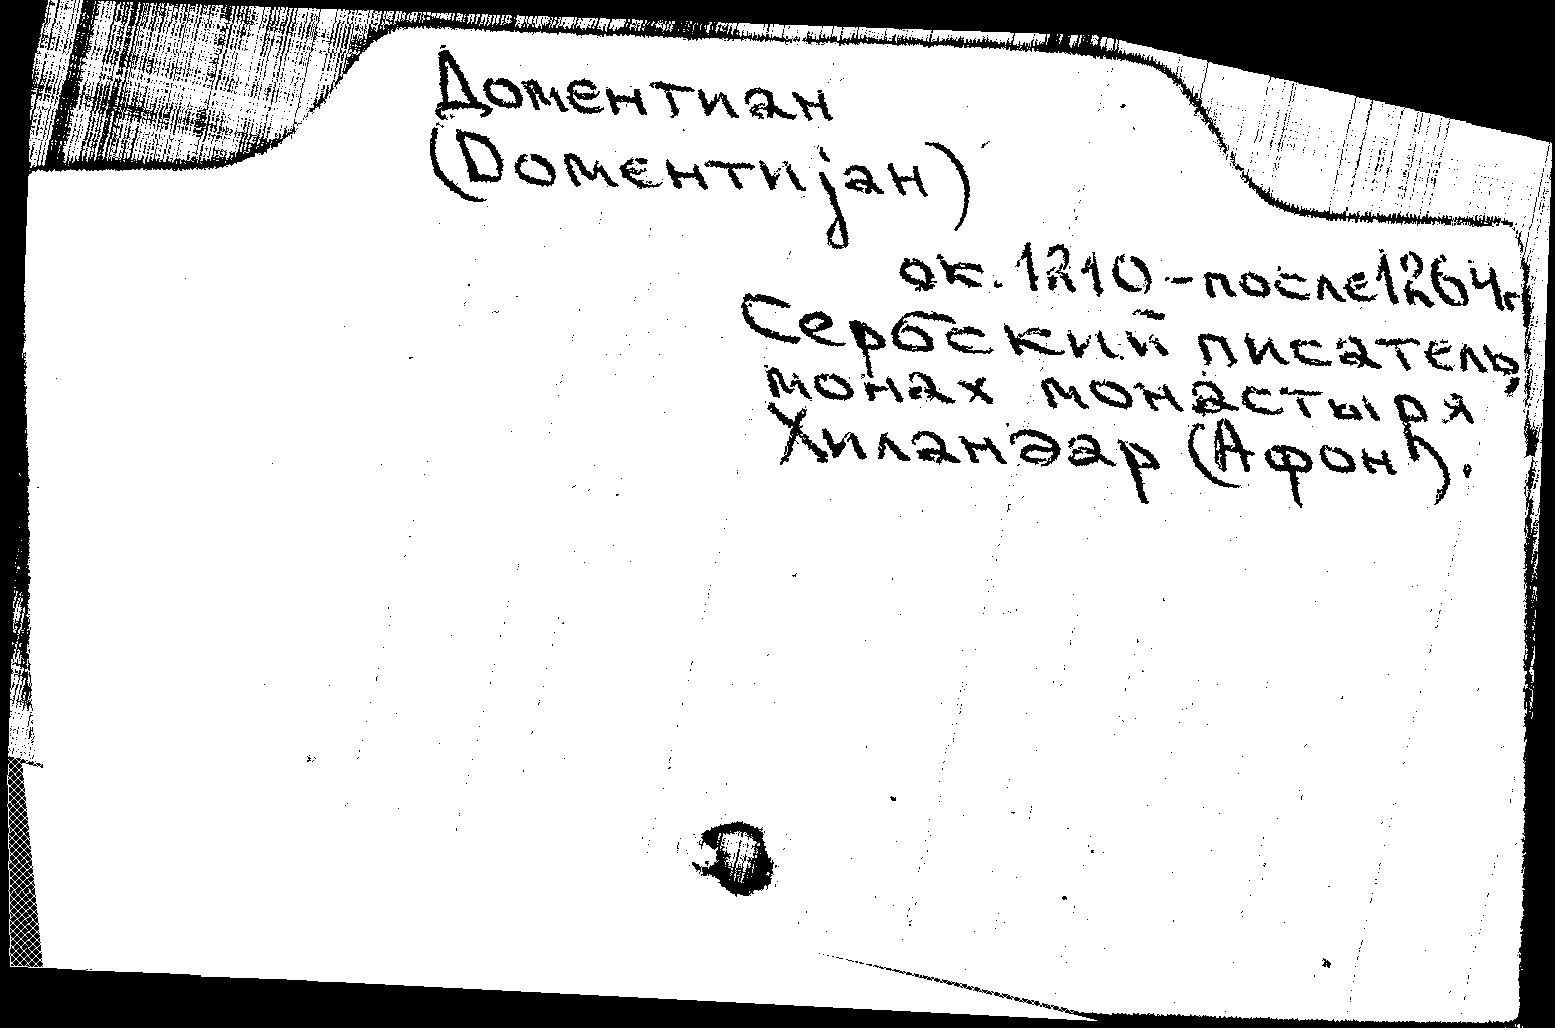 Доментиан
(Доментиjан)
ок. 1210 - после 1264 г.
Сербский писатель,
монах монастыря
Хиландар (Афон).